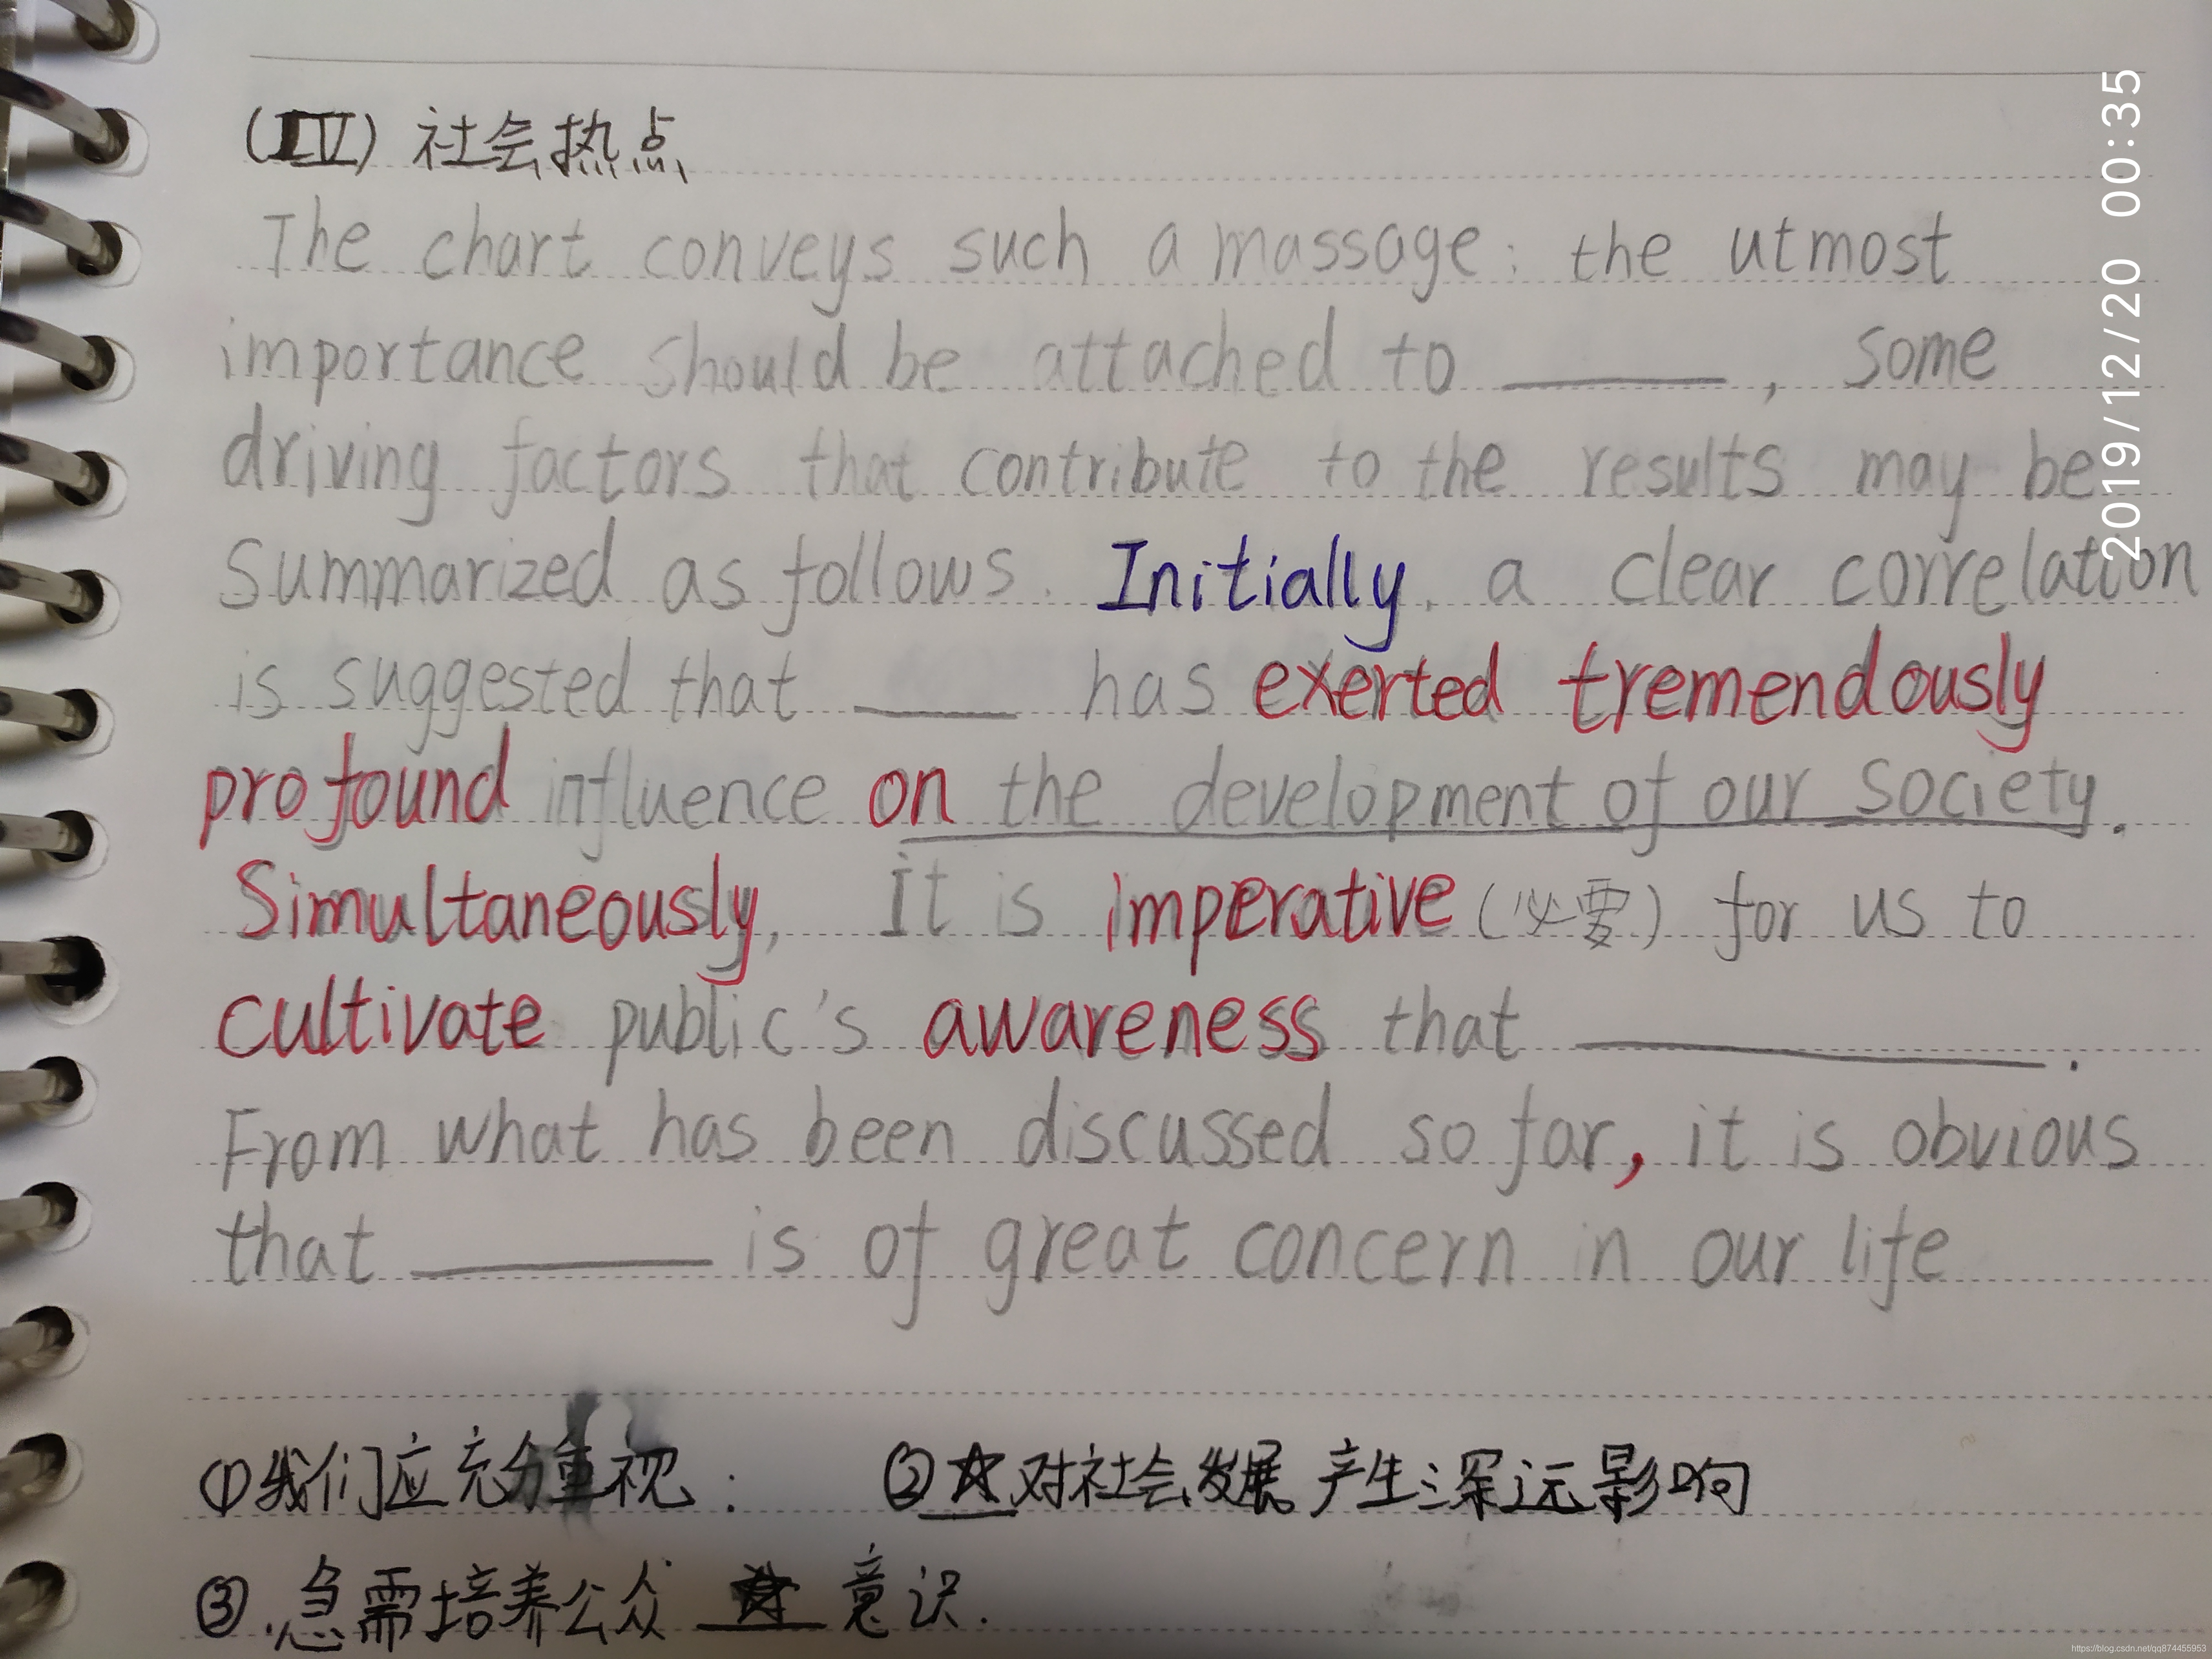 (IV) 社会热点
The chart conveys such a massage: the utmost
importance should be attached to ______, some
driving factors that contribute to the results may be
summarized as follows. Initially, a clear correlation
is suggested that ____ has exerted tremendously
profound influence on the development of our society.
Simultaneously, it is imperative (必要) for us to
cultivate public's awareness that ____________.
From what has been discussed so far, it is obvious
that ________ is of great concern in our life
①我们应充分重视:  ②☆对社会发展产生深远影响
③.急需培养公众 ☆ 意识.
2019/12/20 00:35
https://blog.csdn.net/qq874455953